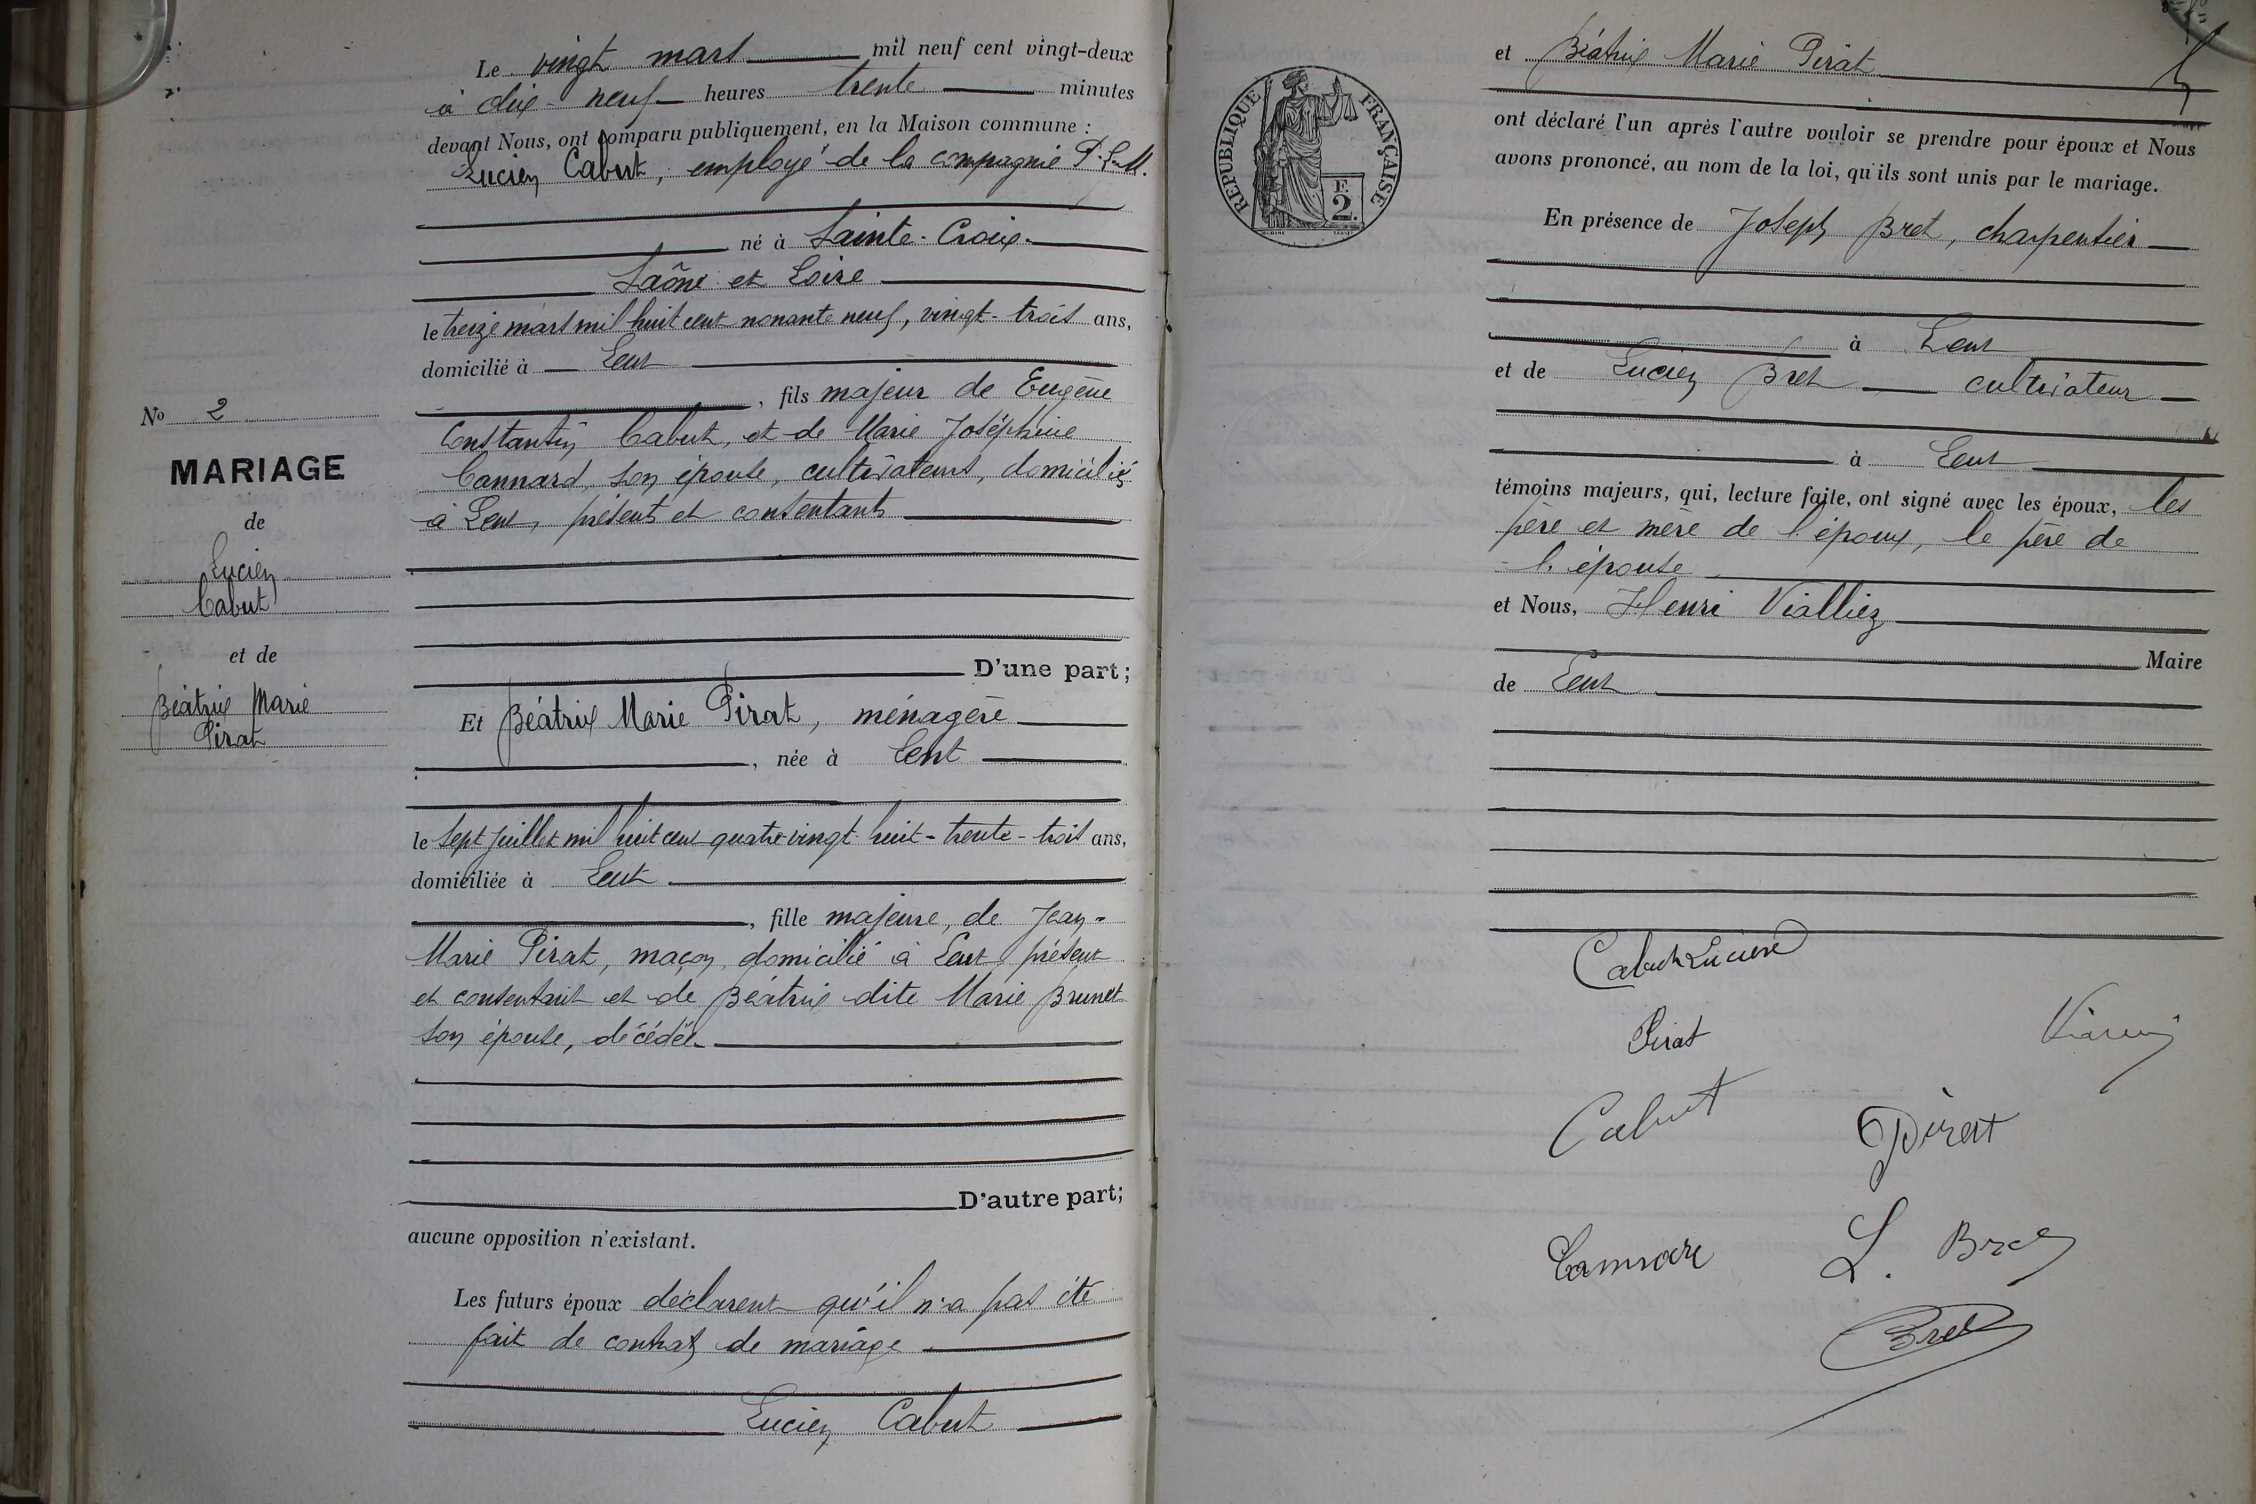 Le vingt mars mil neuf cent vingt-deux
à dix-neuf heures trente minutes
devant Nous, ont comparu publiquement, en la Maison commune :
Lucien Cabut, employé de la compagnie P.L.M.
né à Sainte-Croix-
Saône et Loire
le treize mars mil huit cent nonante neuf, vingt-trois ans,
domicilié à Lent
, fils majeur de Eugène
Constantin Cabut, et de Marie Joséphine
Cannard, son épouse, cultivateurs, domiciliés
à Lent, présents et consentants
No 2
MARIAGE
de
Lucien
Cabut
et de
Béatrix Marie
Pirat
D'une part;
Et Béatrix Marie Pirat, ménagère
, née à Lent
le sept juillet mil huit cent quatre vingt huit - trente-trois ans,
domiciliée à Lent
, fille majeure, de Jean-
Marie Pirat, maçon, domicilié à Lent présent
et consentant et de Béatrix dite Marie Brunet
son épouse, décédée
D'autre part;
aucune opposition n'existant.
Les futurs époux déclarent qu'il n'a pas été
fait de contrat de mariage
Lucien Cabut
et Béatrix Marie Pirat
REPUBLIQUE FRANÇAISE
F.
2.
ont déclaré l'un après l'autre vouloir se prendre pour époux et Nous
avons prononcé, au nom de la loi, qu'ils sont unis par le mariage.
En présence de Joseph Bret, charpentier
à Lent
et de Lucien Bret cultivateur
à Lent
témoins majeurs, qui, lecture faite, ont signé avec les époux, les
père et mère de l'époux, le père de
l'épouse
et Nous, Henri Vialliez
Maire
de Lent
Cabut Lucien
Pirat
Cabut
Pirat
L. Bret
Bret